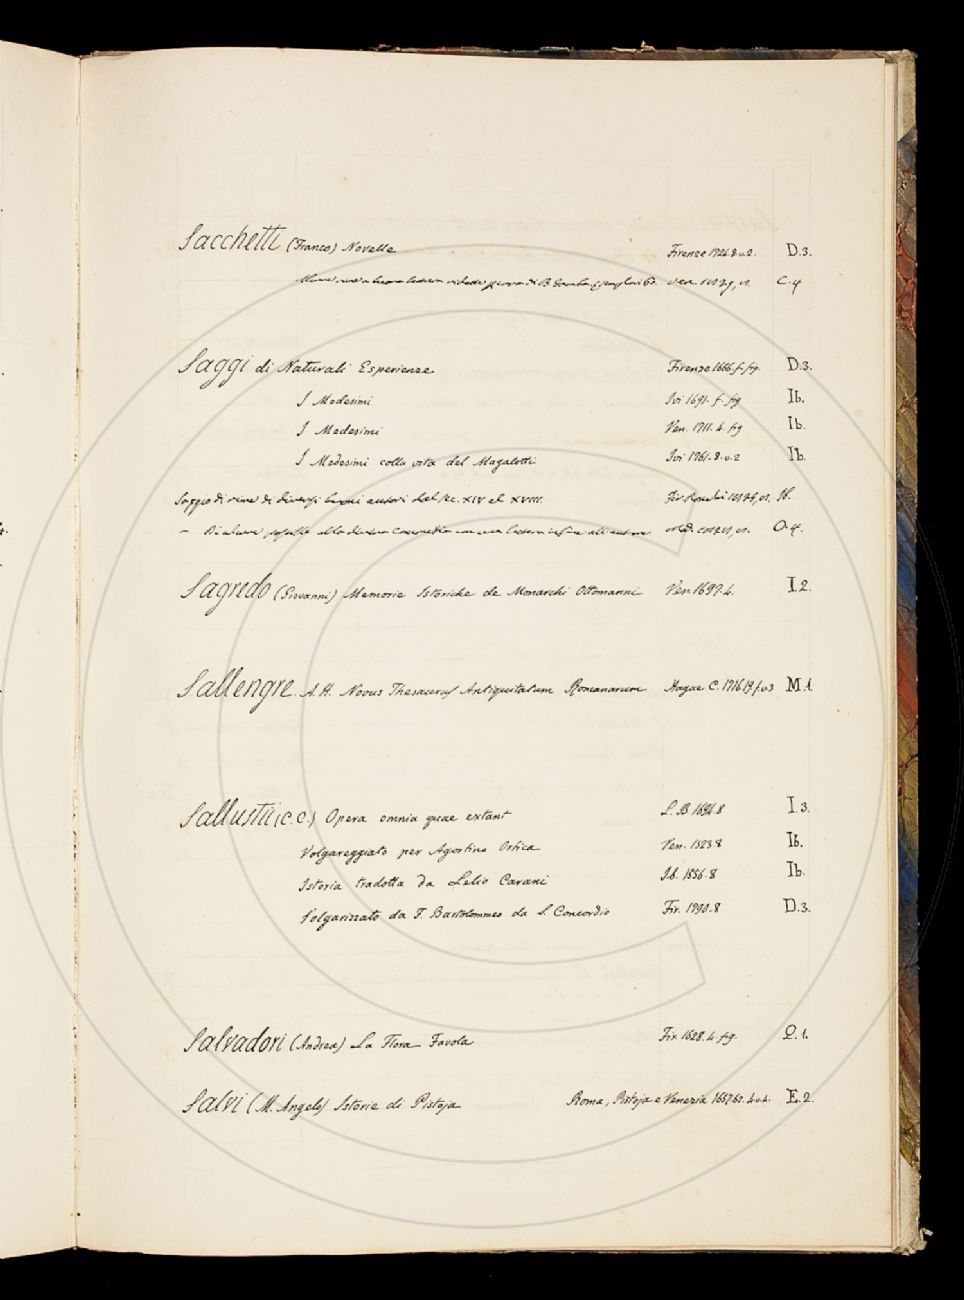 Sacchetti (Franco) Novelle Firenze 1724. 8. v. 2. D. 3.
di B. Gamba C. 4
Saggi di Naturali Esperienze Firenze 1666. f. fig. D. 3.
I Medesimi Ivi 1691. f. fig Ib.
I Medesimi Ven. 1711. 4. fig Ib.
I Medesimi colla vita del Magalotti Ivi 1761. 8. v. 2 Ib.
Saggio di rime di diversi buoni autori del sec. XIV al XVIII. Fir. Ronchi
O. 4.
Sagredo (Giovanni) Memorie Istoriche de Monarchi Ottomanni Ven 1697. 4. I. 2.
Sallengre A. H. Novus Thesaurus Antiquitatum Romanarum Hagae C. 1716.19. f. v. 3 M. 1.
Sallustii (C. C.) Opera omnia quae extant L. B. 1694. 8 I. 3.
Volgareggiato per Agostino Ortica Ven. 1523 8 Ib.
Istoria tradotta da Lelio Carani Ib. 1556. 8 Ib.
Volgarizzato da F. Bartolommeo da S. Concordio Fir. 1790. 8 D. 3.
Salvadori (Andrea) La Flora Favola Fir. 1628. 4. fig. Q. 1.
Salvi (M. Angelo) Istorie di Pistoja Roma, Pistoja e Venezia E. 2.